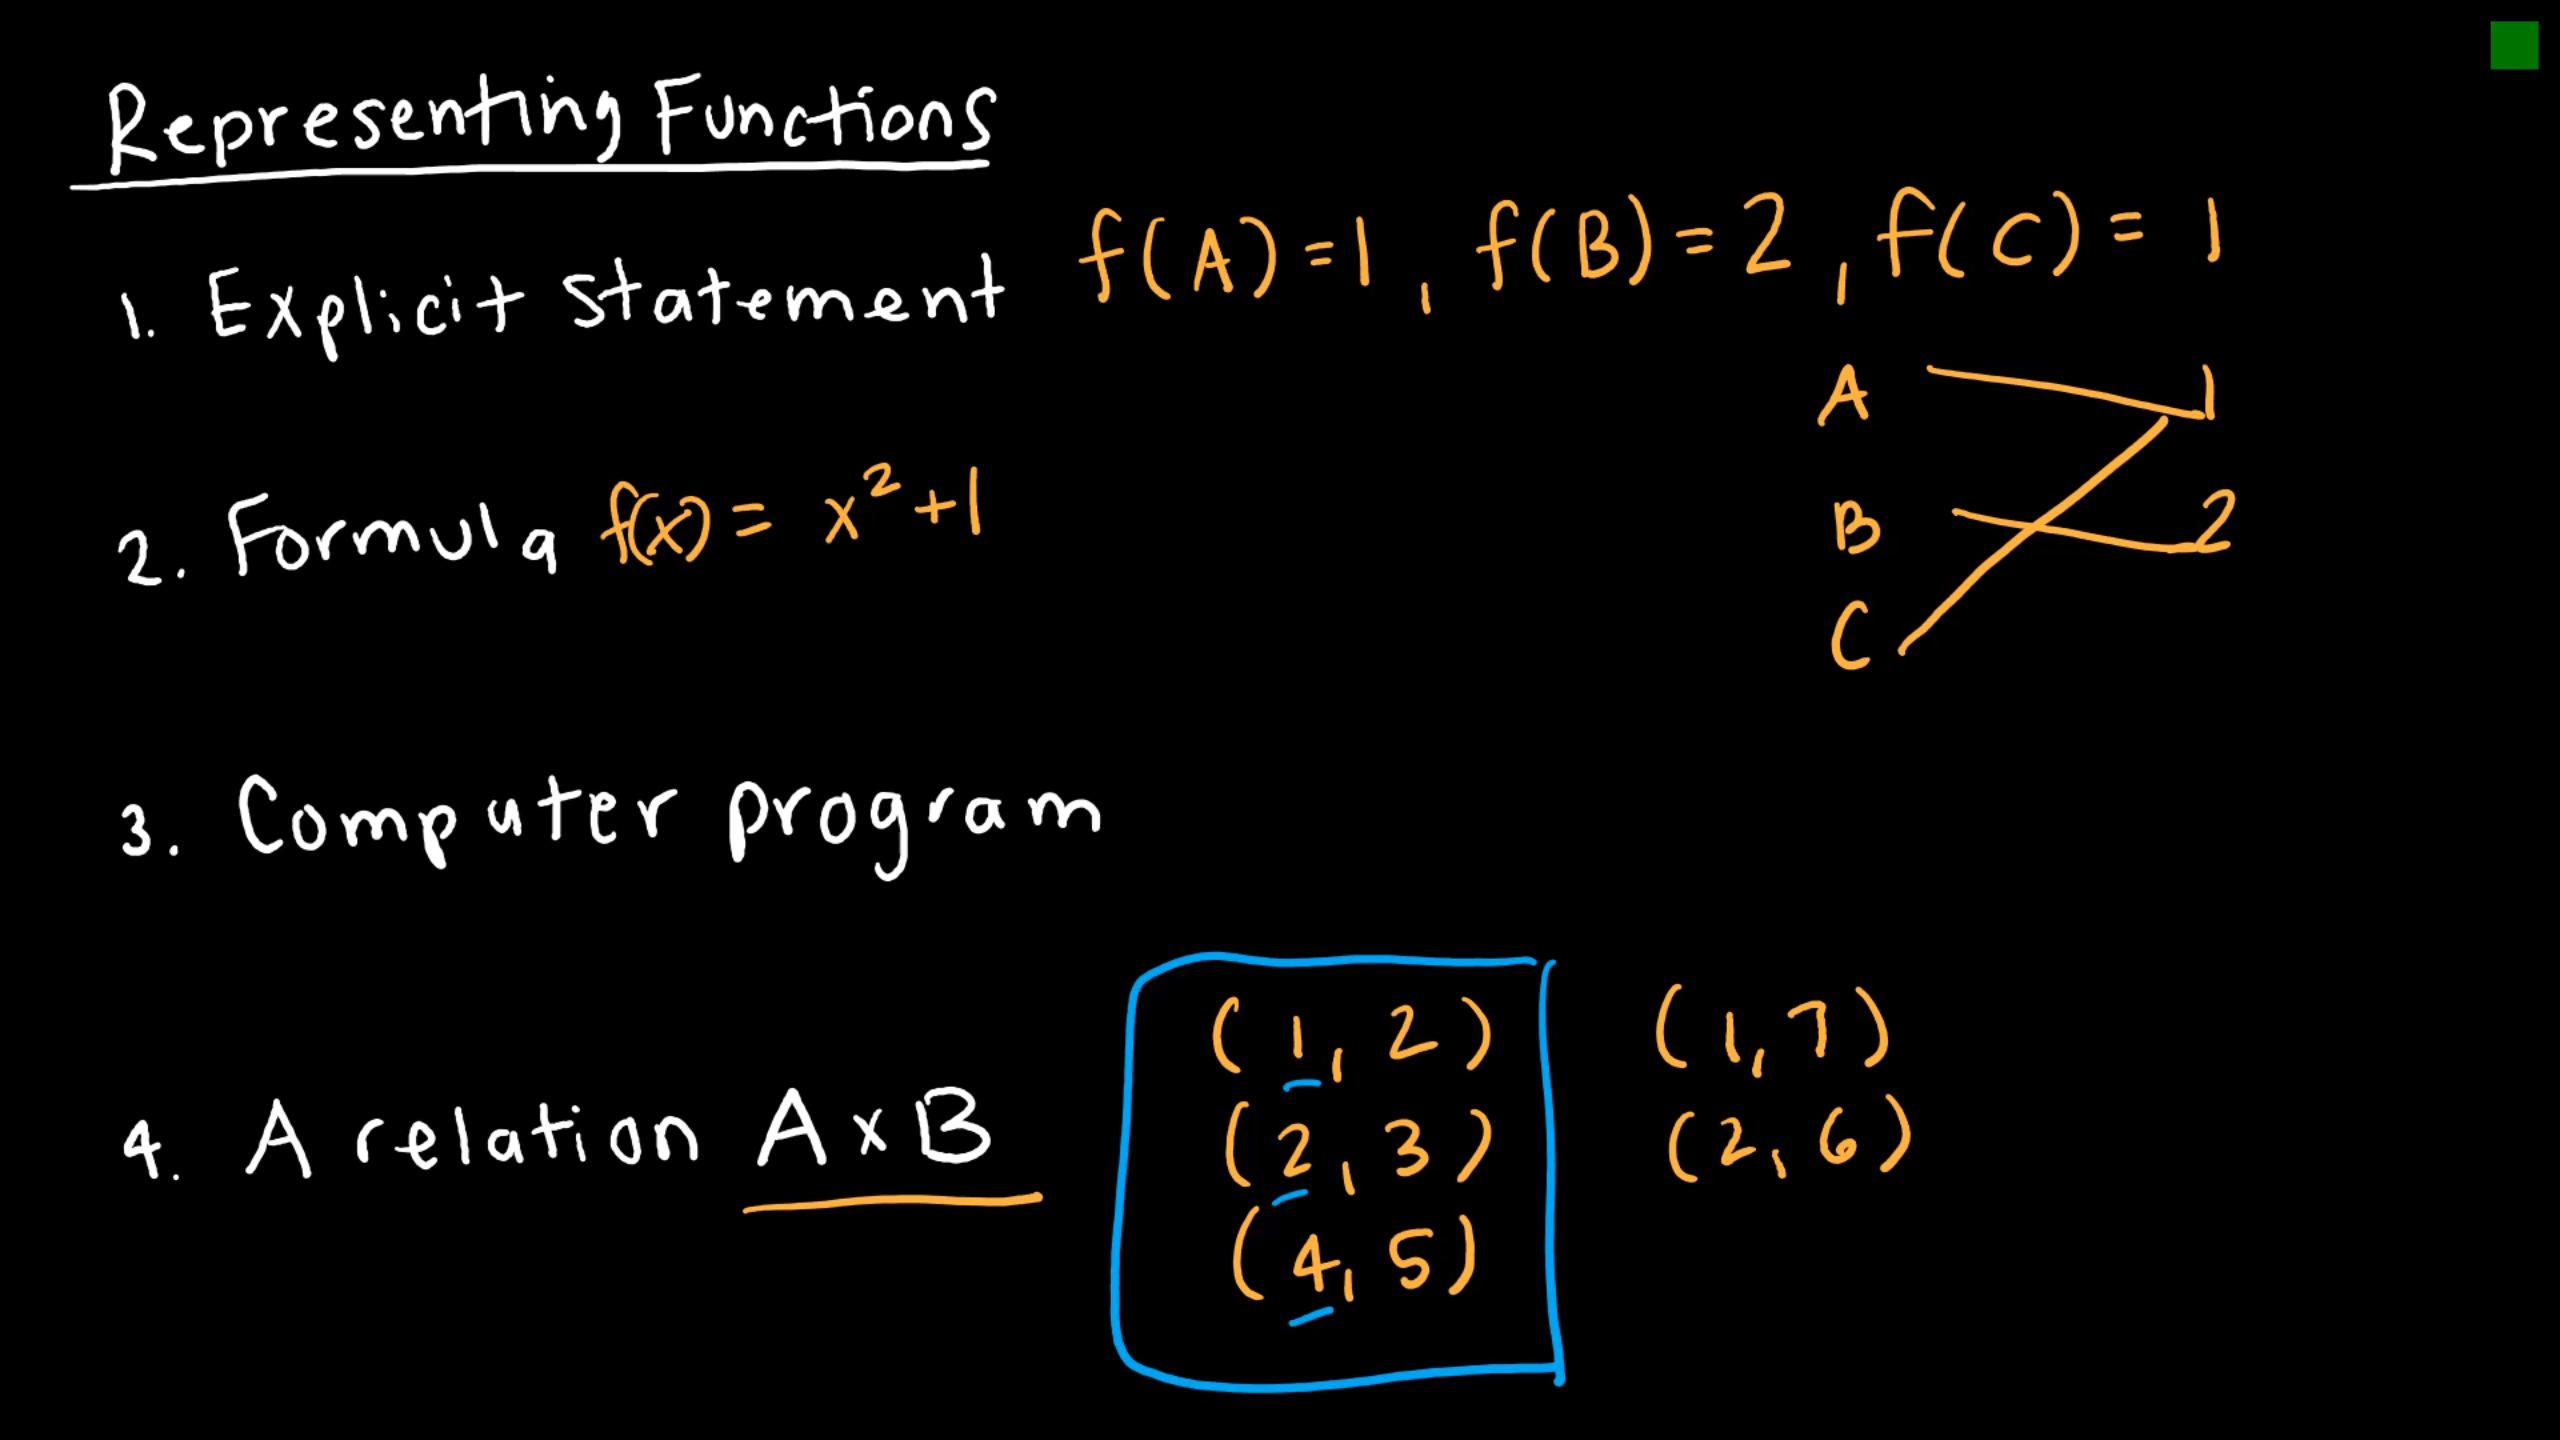 Representing Functions
1. Explicit statement f(A) = 1, f(B) = 2, f(C) = 1
A 1
B 2
C
2. Formula f(x) = x² + 1
3. Computer program
4. A relation A x B
(1, 2) (1, 7)
(2, 3) (2, 6)
(4, 5)